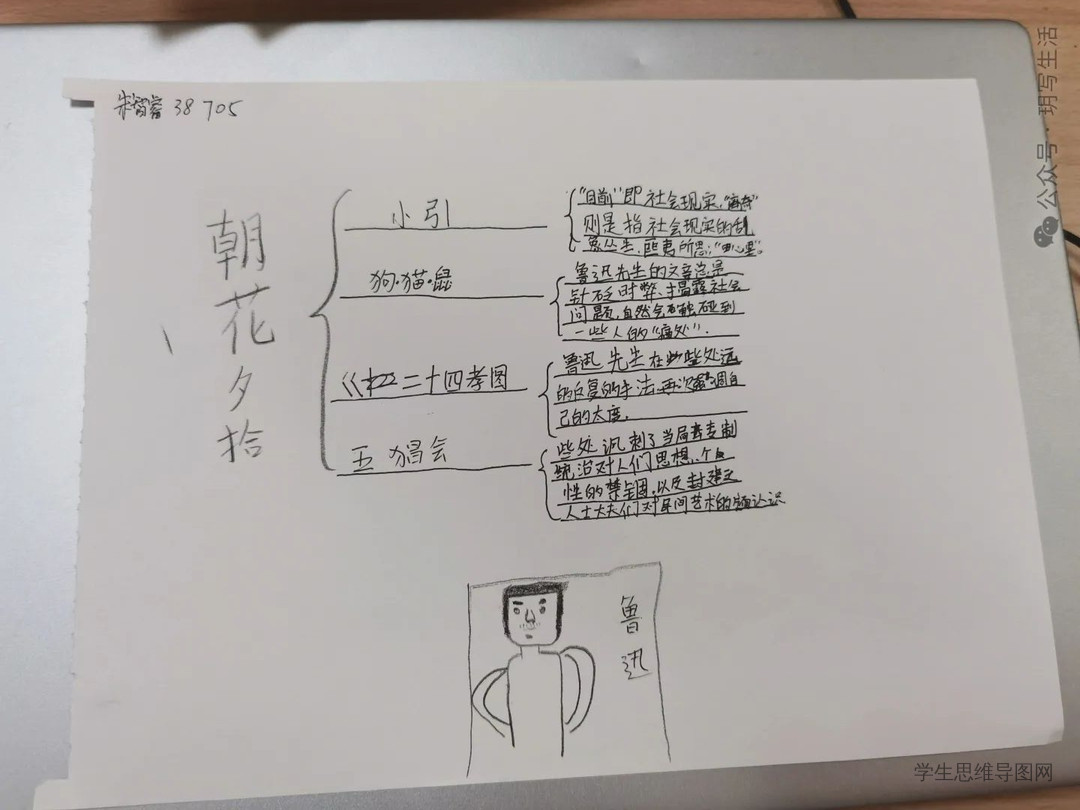 38 705
朝花夕拾
小引
"目前"即社会现实,"离奇"
则是指社会现实的乱
象丛生,匪夷所思;"心里"。
狗·猫·鼠
鲁迅先生的文章总是
针砭时弊、揭露社会
问题,自然会触碰到
一些人的"痛处".
《二十四孝图
鲁迅先生在些处远
的反复的手法,再次强调自
己的太度.
五猖会
些处讽刺了当局专制
统治对人们思想、个
性的禁锢,以及封建
人士大夫们对民间艺术的认识
鲁迅
公众号·玥写生活
学生思维导图网